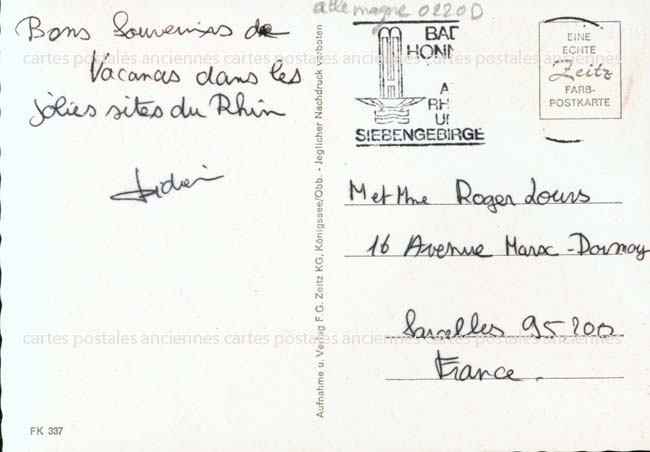 Bons Souvenirs de
Vacances dans les
jolies sites du Rhin
Didier
FK 337
Aufnahme u. Verlag F. G. Zeitz KG, Königssee/Obb. - Jeglicher Nachdruck verboten
allemagne 0220D
BAD
HONN
A
RH
U
SIEBENGEBIRGE
EINE
ECHTE
Zeitz
FARB-
POSTKARTE
M et Mme Roger Louis
16 Avenue Marx-Dormoy
Sarcelles 95200
France.
cartes postales anciennes cartes postales anciennes cartes postales anciennes
cartes postales anciennes cartes postales anciennes cartes postales anciennes